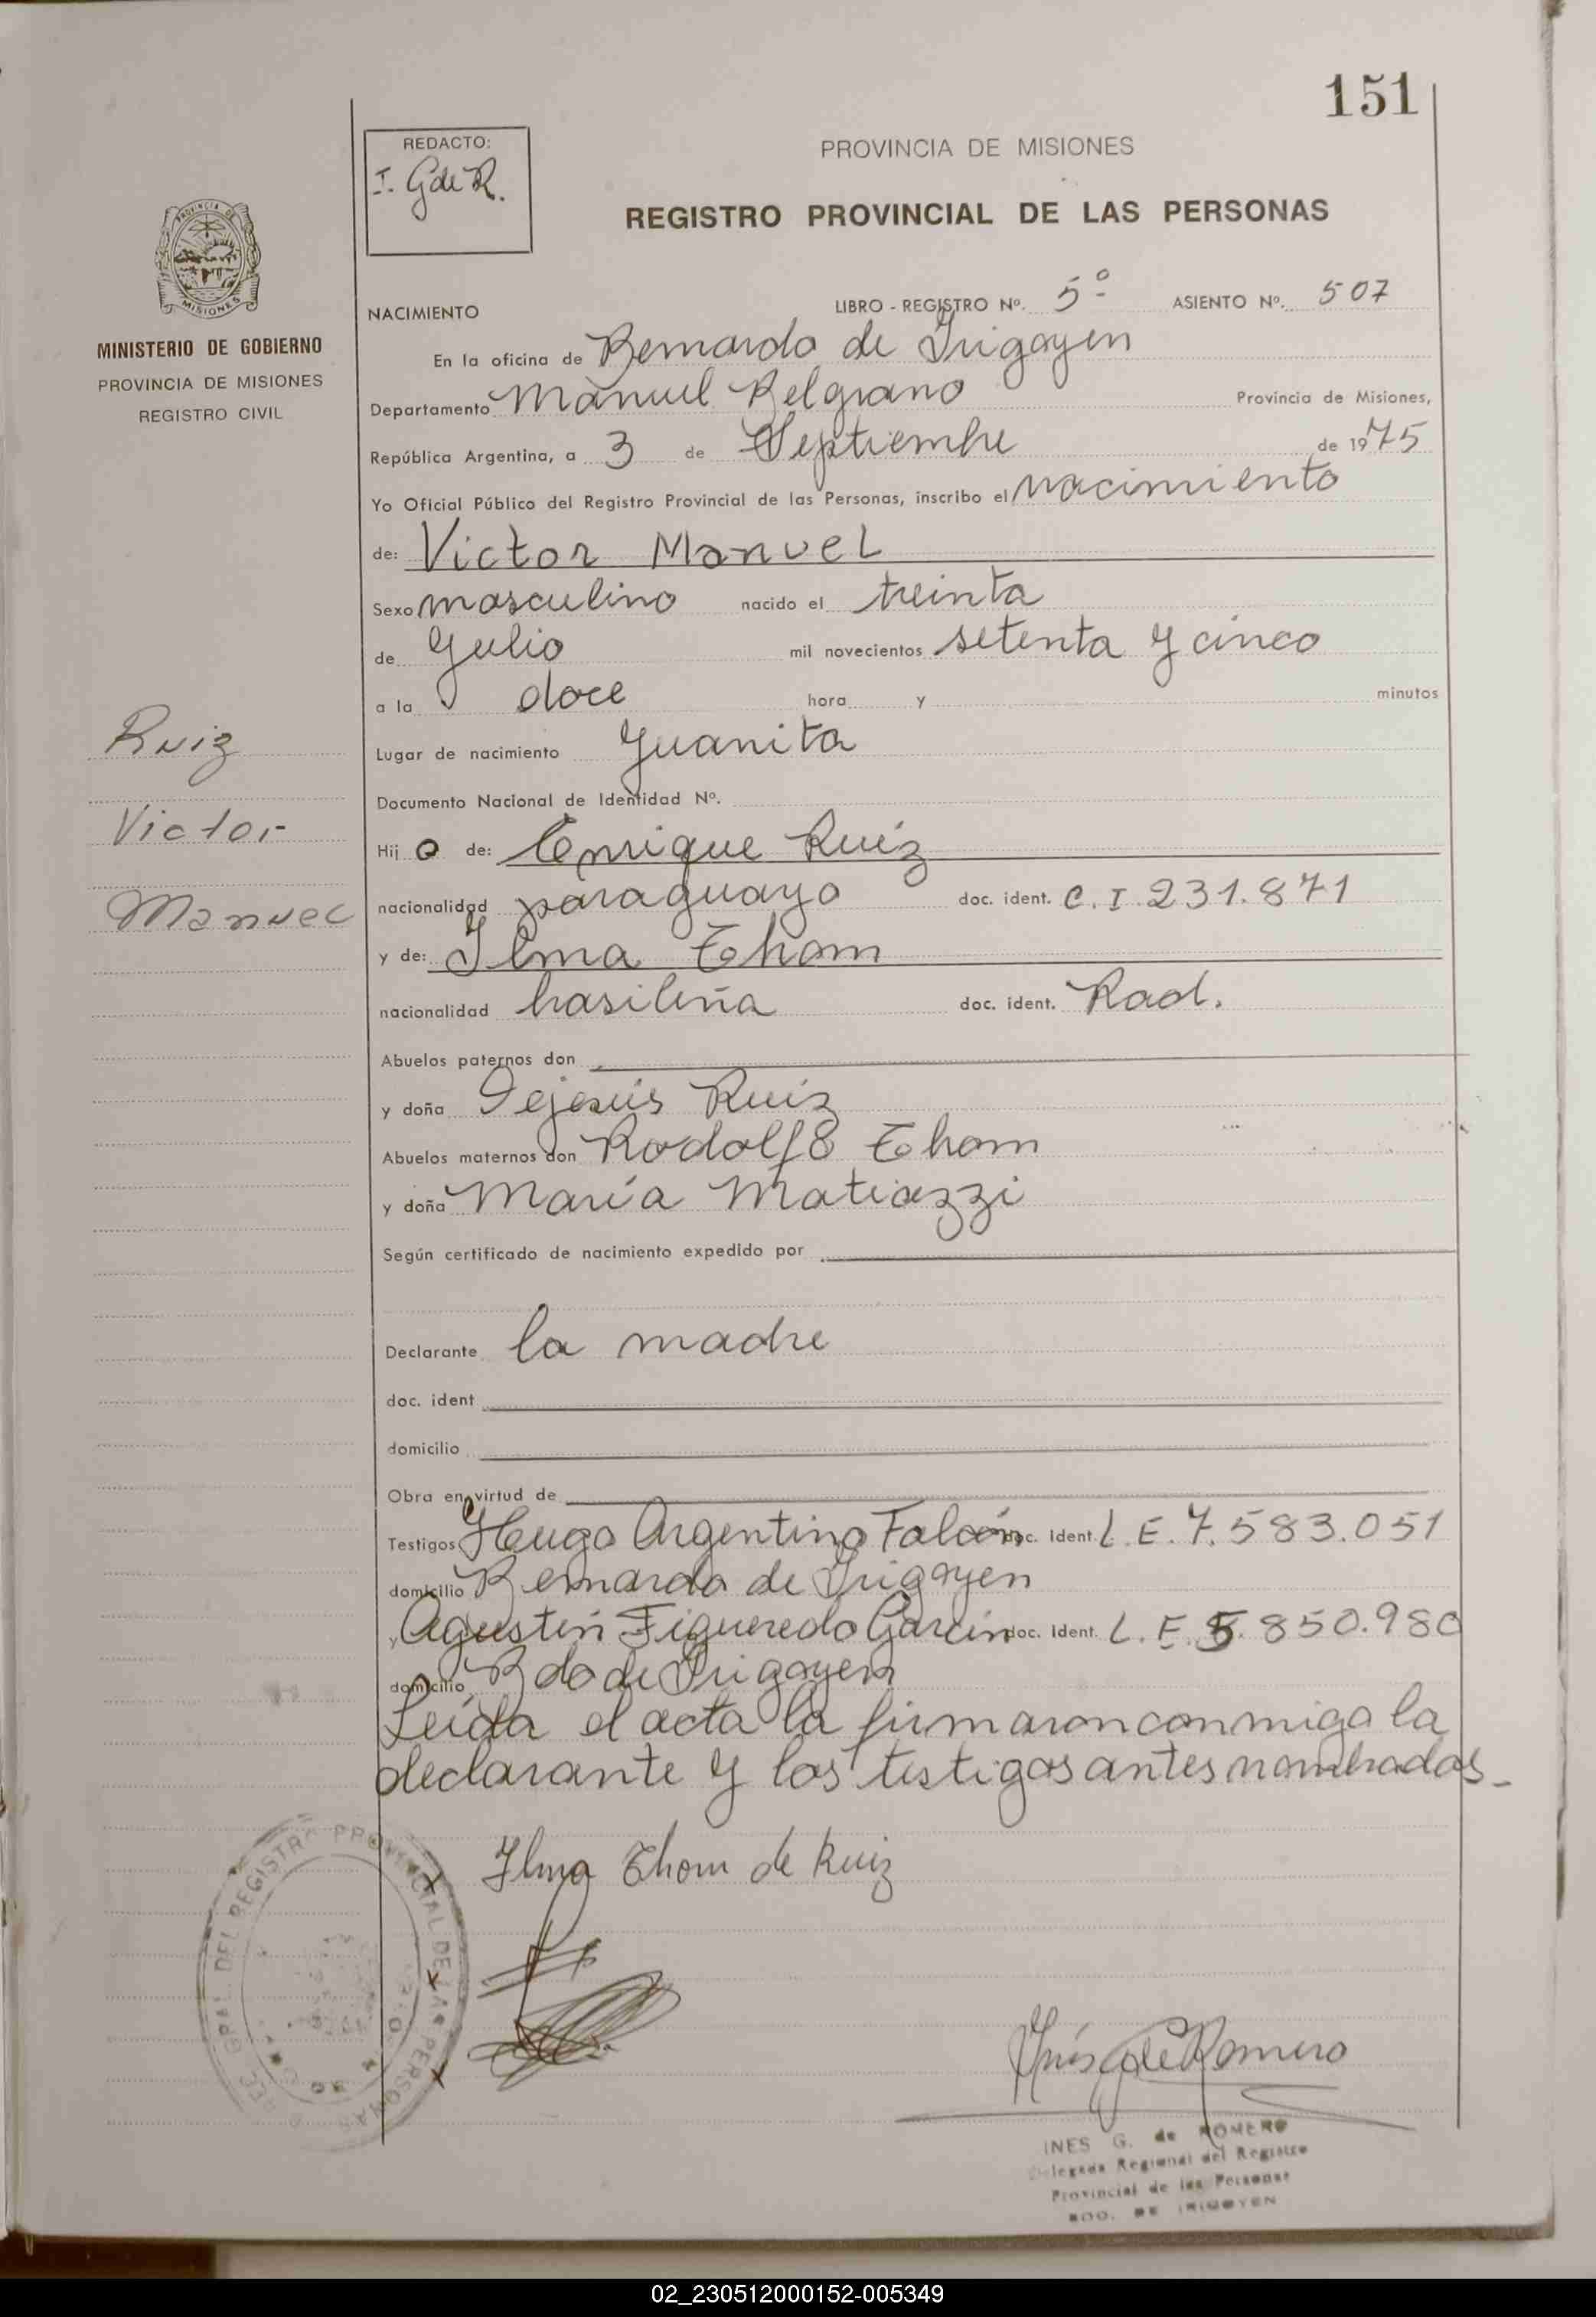 151
REDACTO:
I. G de R.
PROVINCIA DE MISIONES
REGISTRO PROVINCIAL DE LAS PERSONAS
MINISTERIO DE GOBIERNO
PROVINCIA DE MISIONES
REGISTRO CIVIL
NACIMIENTO LIBRO - REGISTRO Nº. 5º ASIENTO Nº. 507
En la oficina de Bernardo de Irigoyen
Departamento Manuel Belgrano Provincia de Misiones,
República Argentina, a 3 de Septiembre de 1975
Yo Oficial Público del Registro Provincial de las Personas, inscribo el nacimiento
de: Victor Manuel
Sexo masculino nacido el treinta
de Julio mil novecientos setenta y cinco
a la doce hora y minutos
Lugar de nacimiento Juanita
Documento Nacional de Identidad Nº.
Hij o de: Enrique Ruiz
nacionalidad paraguayo doc. ident. C. I 231.871
y de: Ilma Thom
nacionalidad brasileña doc. ident. Rad.
Abuelos paternos don
y doña Dejesús Ruiz
Abuelos maternos don Rodolfo Thom
y doña María Matiazzi
Según certificado de nacimiento expedido por
Declarante la madre
doc. ident
domicilio
Obra en virtud de
Testigos Hugo Argentino Falcón doc. Ident. L. E. 7.583.051
domicilio Bernardo de Irigoyen
y Agustín Figueredo Garcín doc. Ident. L. E. 5.850.980
domicilio Bdo de Irigoyen
Leída el acta la firmaron conmigo la
declarante y los testigos antes nombrados_
Ruiz
Victor
Manuel
Ilma Thom de Ruiz
Inés G de Romero
INES G. de ROMERO
Delegada Regional del Registro
Provincial de las Personas
BDO. DE IRIGOYEN
DEL REGISTRO PROVINCIAL DE LAS PERSONAS
02_230512000152-005349